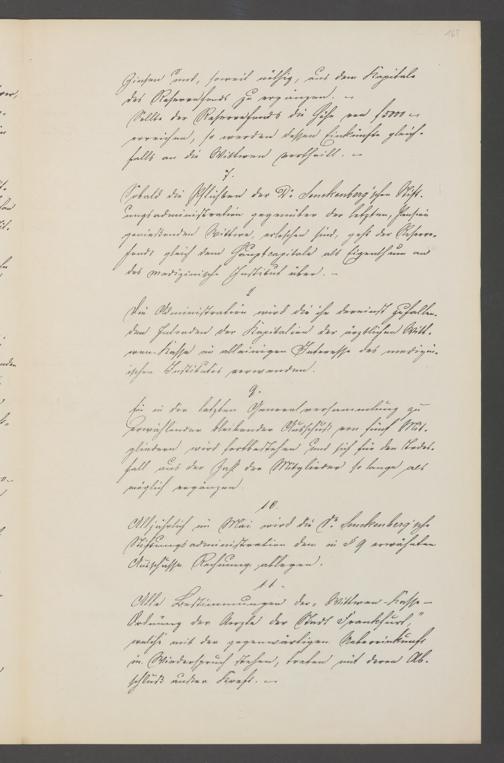 163
Zinsen und, soweit nöthig, aus dem Kapitale
des Reservefonds zu ergänzen. –
Sollte der Reservefonds die Höhe von f 5000 –
erreichen, so werden dessen Einkünfte gleich-
falls an die Wittwen vertheilt. –
7.
Sobald die Pflichten der Dr. Senckenberg'schen Stift-
ungsadministration gegenüber der letzten, Pension
genießenden Wittwe, erloschen sind, geht der Reserve-
fonds gleich dem Hauptcapitale als Eigenthum an
das medizinische Institut über. –
8
Die Administration wird die ihr dereinst zufallen-
den Intraden der Kapitalien der ärztlichen Witt-
wen-Kasse im alleinigen Interesse des medizin-
ischen Institutes verwenden.
9.
Ein in der letzten Generalversammlung zu
erwählender bleibender Ausschuß von fünf Mit-
gliedern wird fortbestehen und sich für den Todes-
fall aus der Zahl der Mitglieder so lange als
möglich ergänzen
10.
Alljährlich im Mai wird die Dr. Senckenberg'sche
Stiftungsadministration dem in § 9 erwähnten
Ausschusse Rechnung ablegen.
11.
Alle Bestimmungen der „Wittwen-Kasse-
Ordnung der Aerzte der Stadt Frankfurt,"
welche mit der gegenwärtigen Uebereinkunft
in Wiederspruch stehen, treten mit deren Ab-
schluß außer Kraft. –